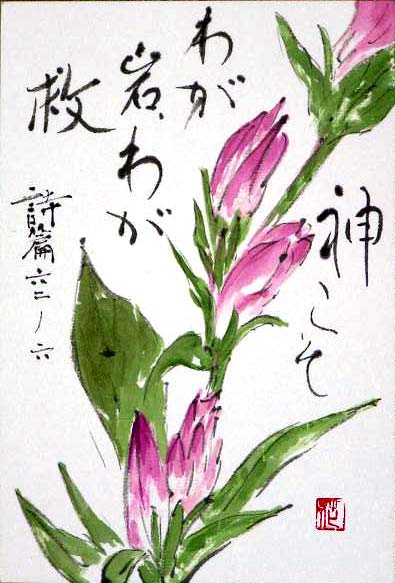 神こそ
わが
岩、わが
救
詩篇六二ノ六